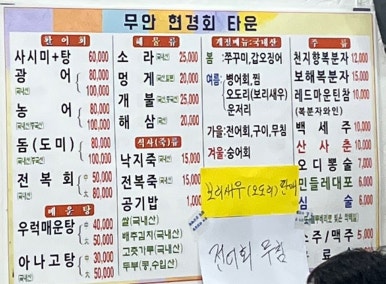 무안 현경회 타운
활 어 회
사시미+탕 60,000
광 어
80,000
100,000
농 어
80,000
100,000
돔(도미)
80,000
100,000
전 복 회
50,000
60,000
매 운 탕
우럭매운탕
40,000
50,000
아나고탕
30,000
50,000
해 물 류
소 라 25,000
멍 게 20,000
개 불 25,000
해 삼 20,000
식사(죽)류
낙지죽 15,000
전복죽 15,000
공기밥 1,000
쌀(국내산)
배추김치(국내산)
고춧가루(국내산)
두부(콩,수입산)
계절메뉴:국내산
봄: 쭈꾸미,갑오징어
여름: 병어회,찜
오도리(보리새우)
운저리
가을:전어회,구이,무침
겨울:숭어회
보리새우(오도리) 판매
전어회 무침
주 류
천지향복분자 12,000
보해복분자 15,000
레드마운틴참 10,000
(복분자와인)
백 세 주 10,000
산 사 춘 10,000
오 디 뽕 술 7,000
민들레대포 6,000
심 술 6,000
소주/맥주 5,000